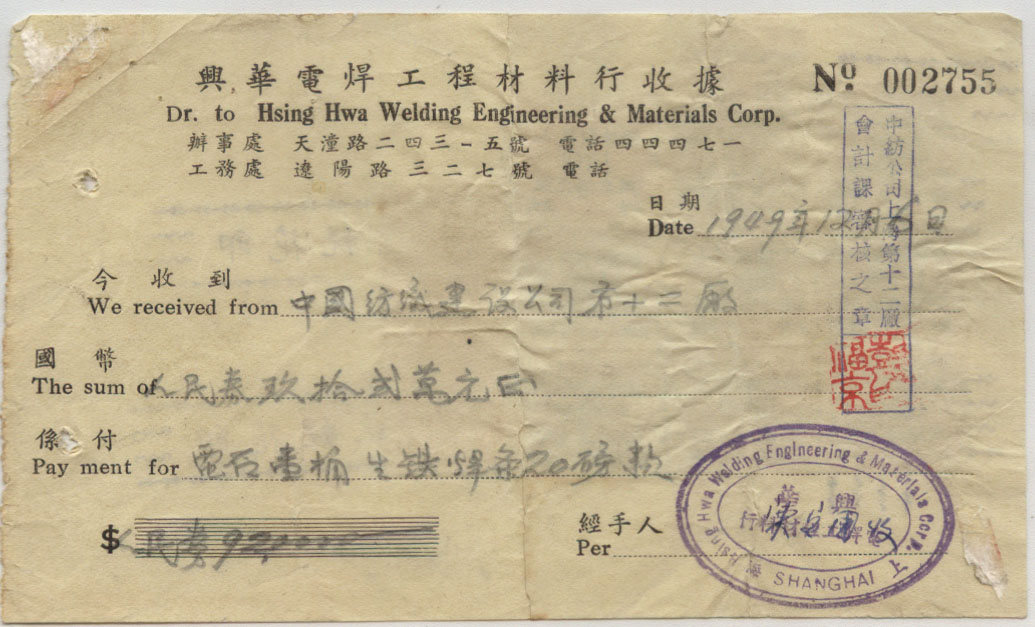 興華電焊工程材料行收據
Nº 002755
Dr. to Hsing Hwa Welding Engineering & Materials Corp.
辦事處 天潼路二四三-五號 電話四四四七一
工務處 遼陽路三二七號 電話
日期
Date 1949年12月5日
今收到
We received from 中國紡織建設公司 十二廠
國幣
The sum of 人民券玖拾弍萬元正
係付
Pay ment for 電石壹桶 生铁焊条20磅款
$ 人民券92
經手人
Per 收
中紡公司上海第十二廠
會計課 核之章
彭福京印
Hsing Hwa Welding Engineering & Materials Corp.
興華
電焊工程材料行
上海 SHANGHAI